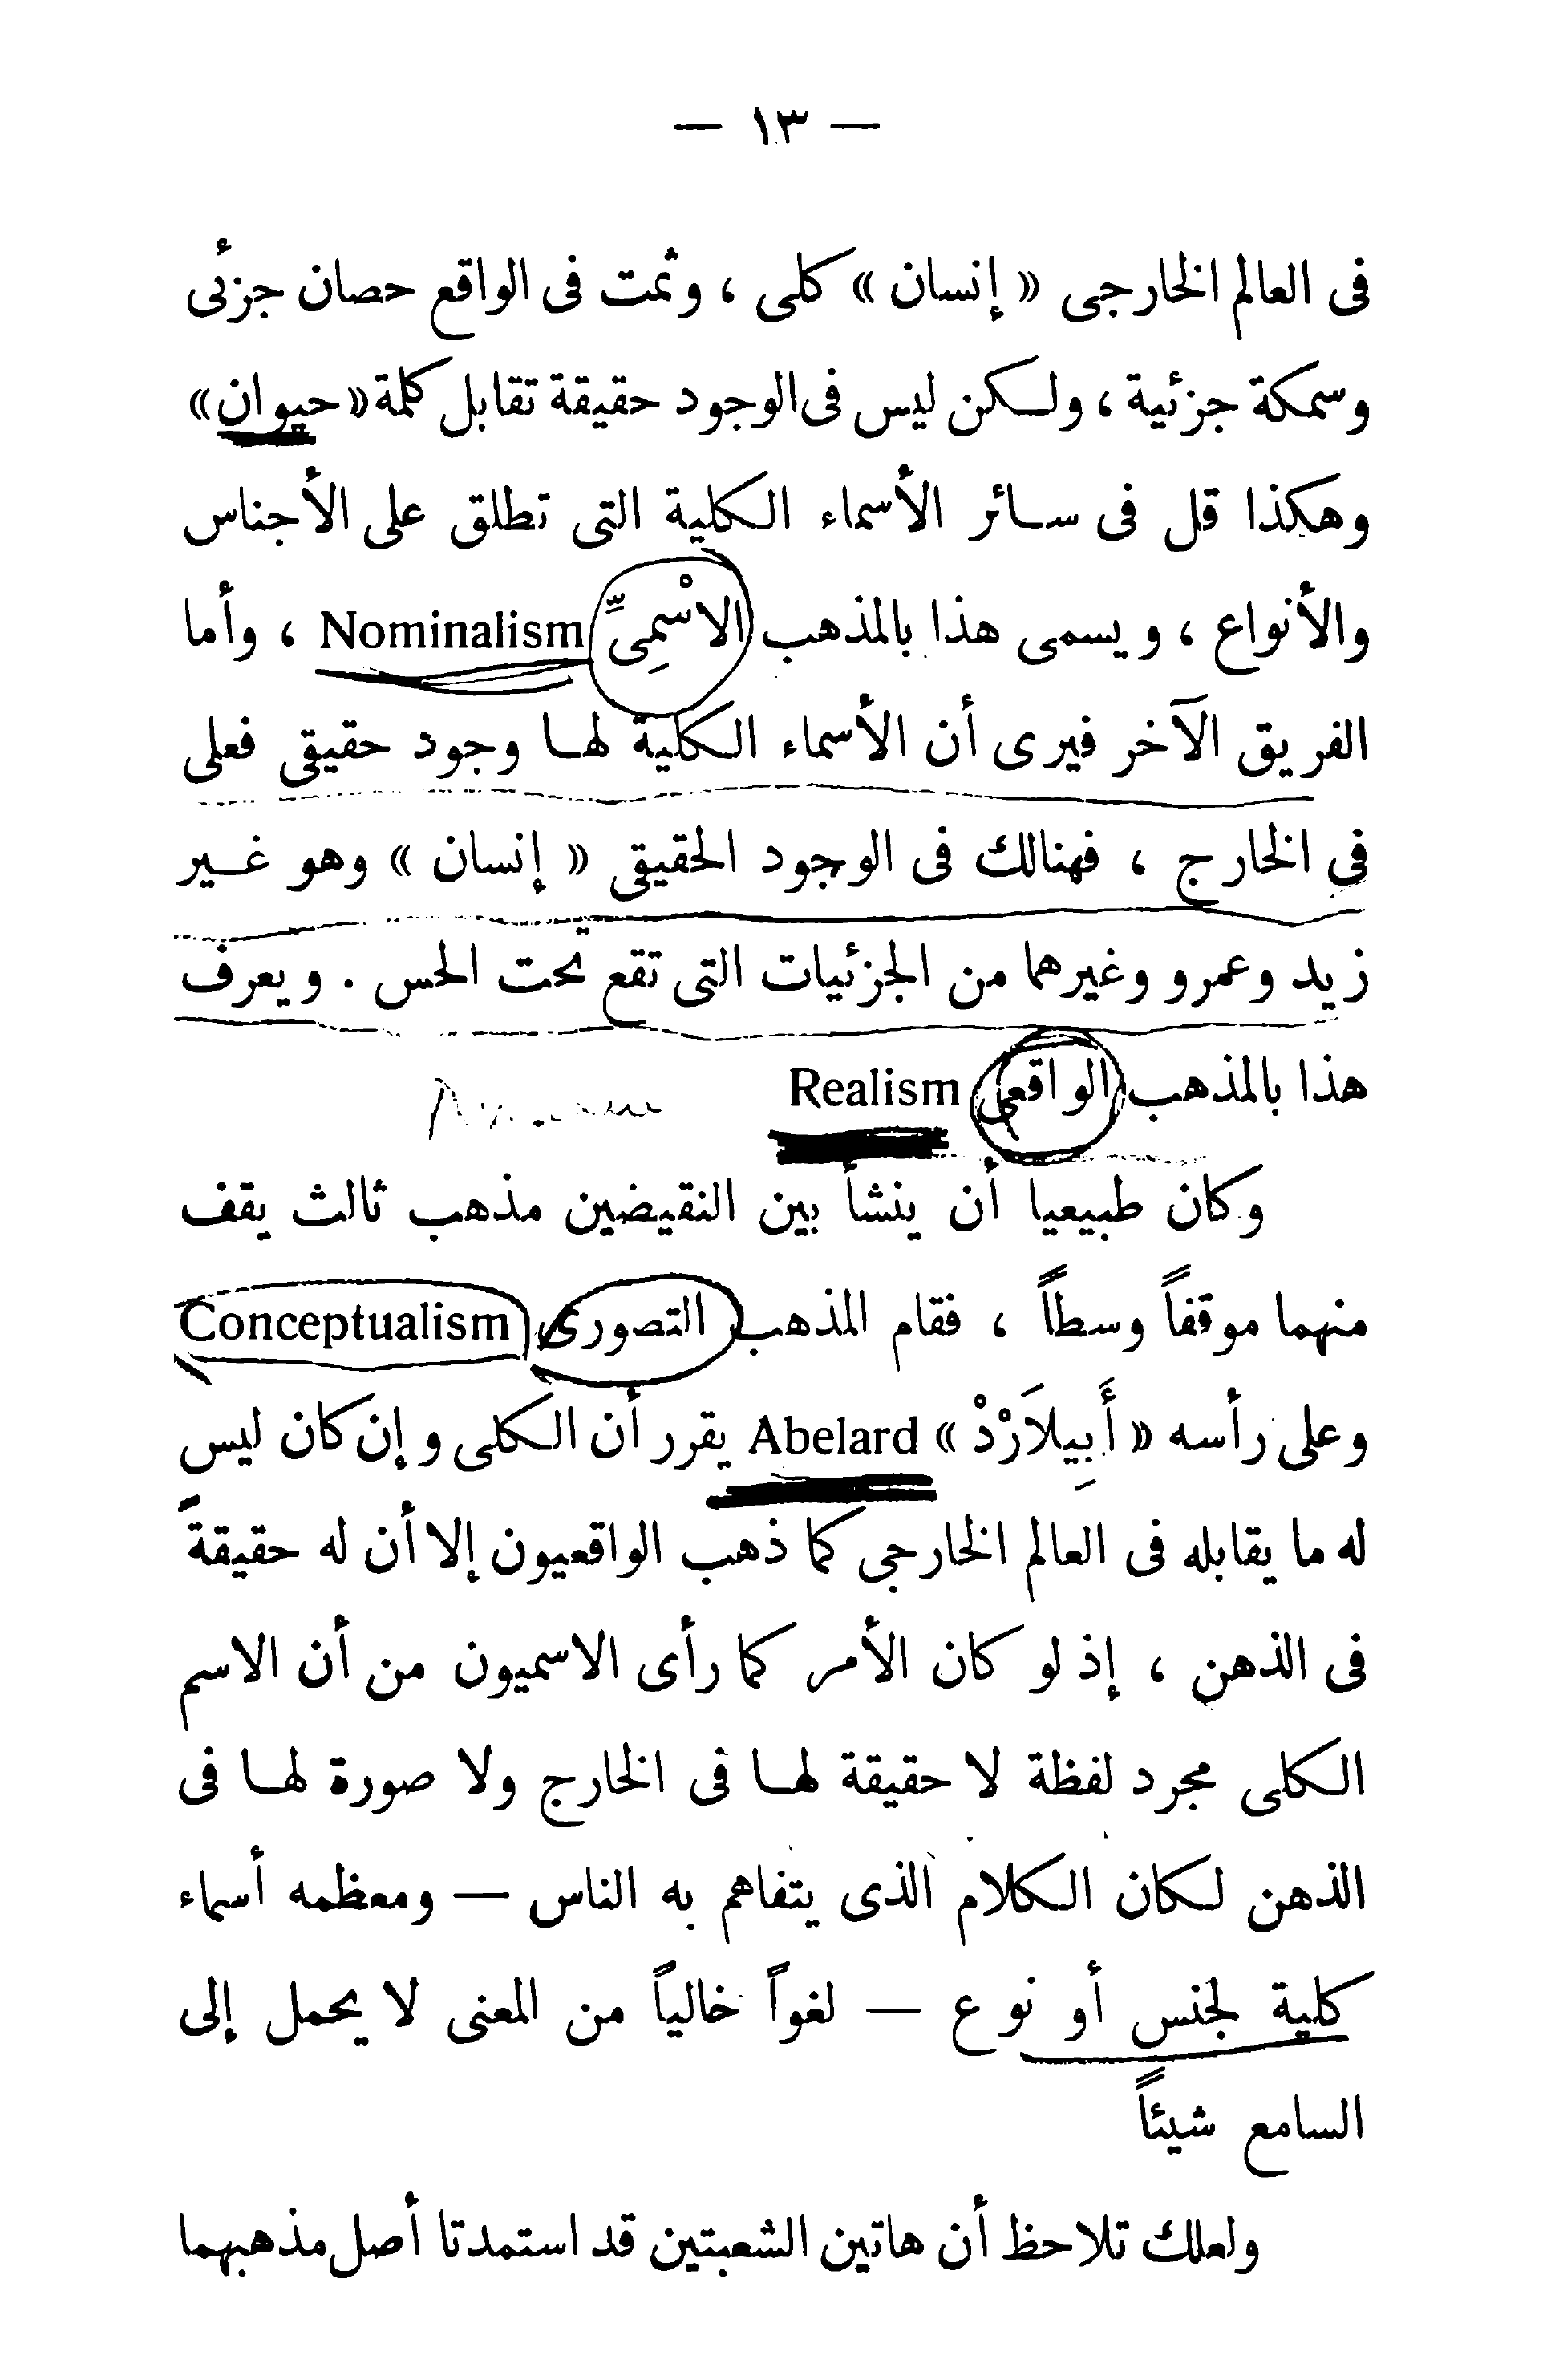 — ١٣ —
فى العالم الخارجى « إنسان » كلى ، وثمت فى الواقع حصان جزئى
وسمكة جزئية ، ولكن ليس فى الوجود حقيقة تقابل كلمة « حيوان »
وهكذا قل فى سائر الأسماء الكلية التى تطلق على الأجناس
والأنواع ، ويسمى هذا بالمذهب الاسْمِىِّ Nominalism ، وأما
الفريق الآخر فيرى أن الأسماء الكلية لها وجود حقيقى فعلى
فى الخارج ، فهنالك فى الوجود الحقيقى « إنسان » وهو غير
زيد وعمرو وغيرهما من الجزئيات التى تقع تحت الحس . ويعرف
هذا بالمذهب الواقعى Realism
وكان طبيعيا أن ينشأ بين النقيضين مذهب ثالث يقف
منهما موقفاً وسطاً ، فقام المذهب التصورى Conceptualism
وعلى رأسه « أَبِيلاَرْدْ » Abelard يقرر أن الكلى وإن كان ليس
له ما يقابله فى العالم الخارجى كما ذهب الواقعيون إلا أن له حقيقةً
فى الذهن ، إذ لو كان الأمر كما رأى الاسميون من أن الاسم
الكلى مجرد لفظة لا حقيقة لها فى الخارج ولا صورة لها فى
الذهن لكان الكلام الذى يتفاهم به الناس — ومعظمه أسماء
كلية لجنس أو نوع — لغواً خالياً من المعنى لا يحمل إلى
السامع شيئاً
ولعلك تلاحظ أن هاتين الشعبتين قد استمدتا أصل مذهبهما